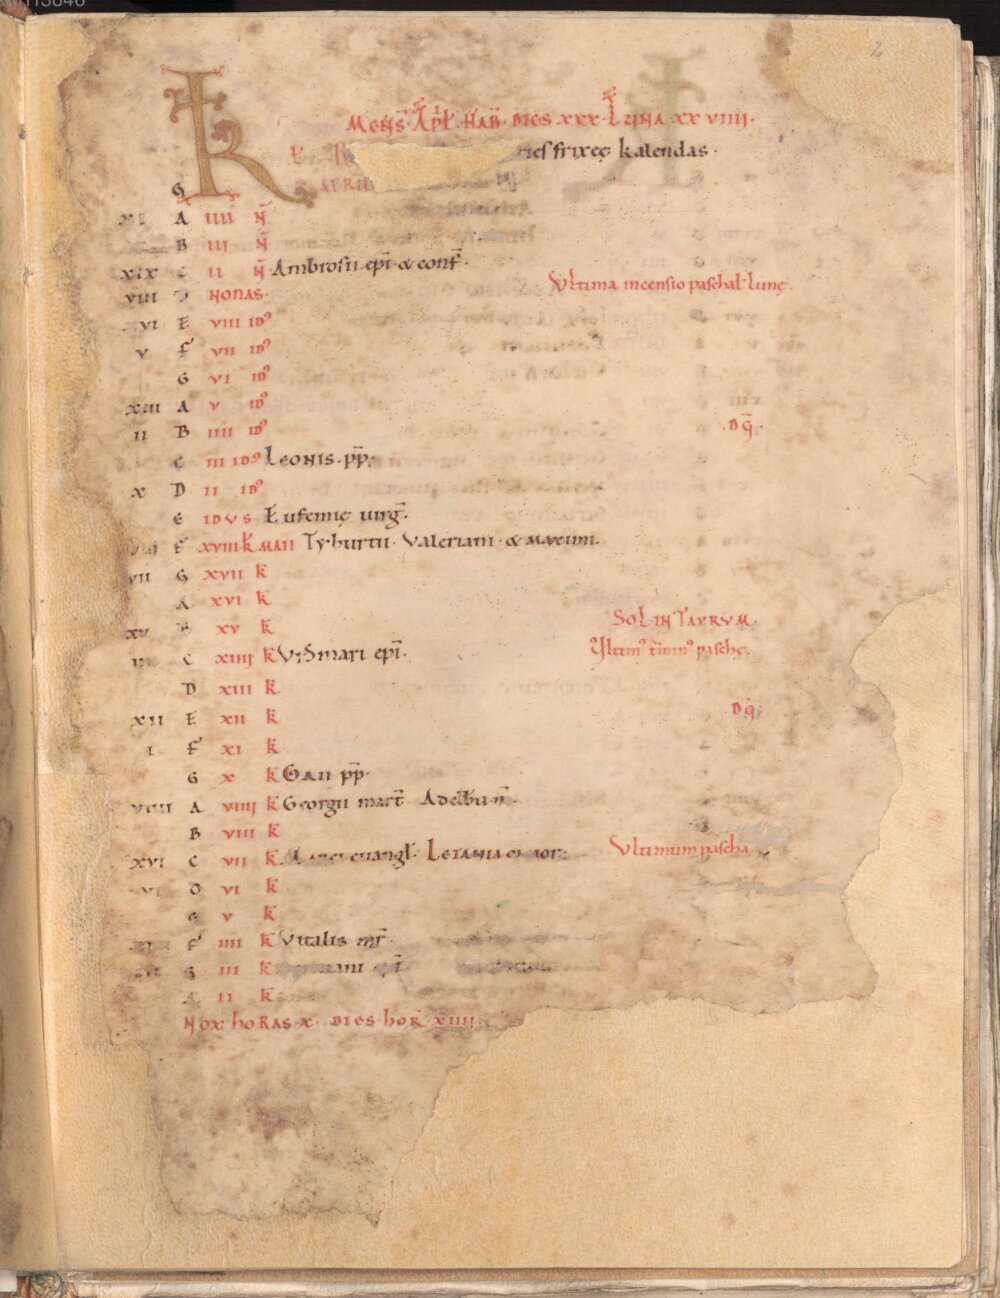 2
K
MENS̄ · APŁ · HAB̄ · DIES XXX · LUNA XXVIIII ·
ries frixeę kalendas ·
G APRIL
XI A IIII N̄
B III N̄
XIX C II N̄ Ambrosii ep̄i & conf̄ ·
Ultima incensio paschał lunę ·
VIII D NONAS ·
XVI E VIII ID᾿
V F VII ID᾿
G VI ID᾿
XIII A V ID᾿
II B IIII ID᾿ Dq̄ ·
C III ID᾿ Leonis · pp̄ ·
X D II ID᾿
E IDVS Eufemię uirḡ ·
F XVIII K̄ MAII Tyburtii · Valeriani · & maximi ·
VII G XVII K̄
A XVI K̄
SOL IN TAVRVM ·
XV XV K̄
Ultim᾿ t̄min᾿ pasche ·
C XIIII K̄ Vidmari ep̄i ·
D XIII K̄
Dq̄ ·
XII E XII K̄
I F XI K̄
G X K̄ Gaii pp̄ ·
VIIII A VIIII K̄ Georgii mart̄ ·
B VIII K̄
XVI C VII K̄ euangł · LETANIA
Ultimum pascha
VI D VI K̄
V K̄
F IIII K̄ Vitalis m̄r ·
G III K̄ ep̄i
A II K̄
NOX hoRAS · X · DIES hoR̄ · XIIII ·